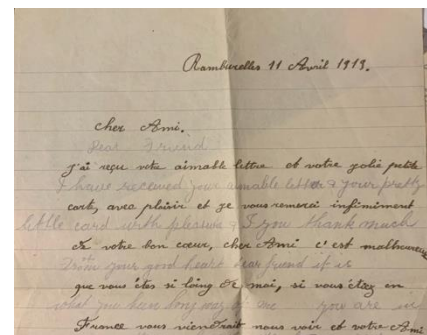 Ramburelles 11 Avril 1919.
cher Ami.
Dear Friend
j'ai reçu votre aimable lettre et votre jolie petite
I have received your aimable letter & your pretty
carte, avec plaisir et je vous remerci infiniment
little card with pleasure & I you thank much
de votre bon cœur, cher Ami c'est malheureux
from your good heart dear friend it is
que vous êtes si loing de moi, si vous étiez en
what you been long way of me you are in
France vous viendrait nous voir et votre Ami